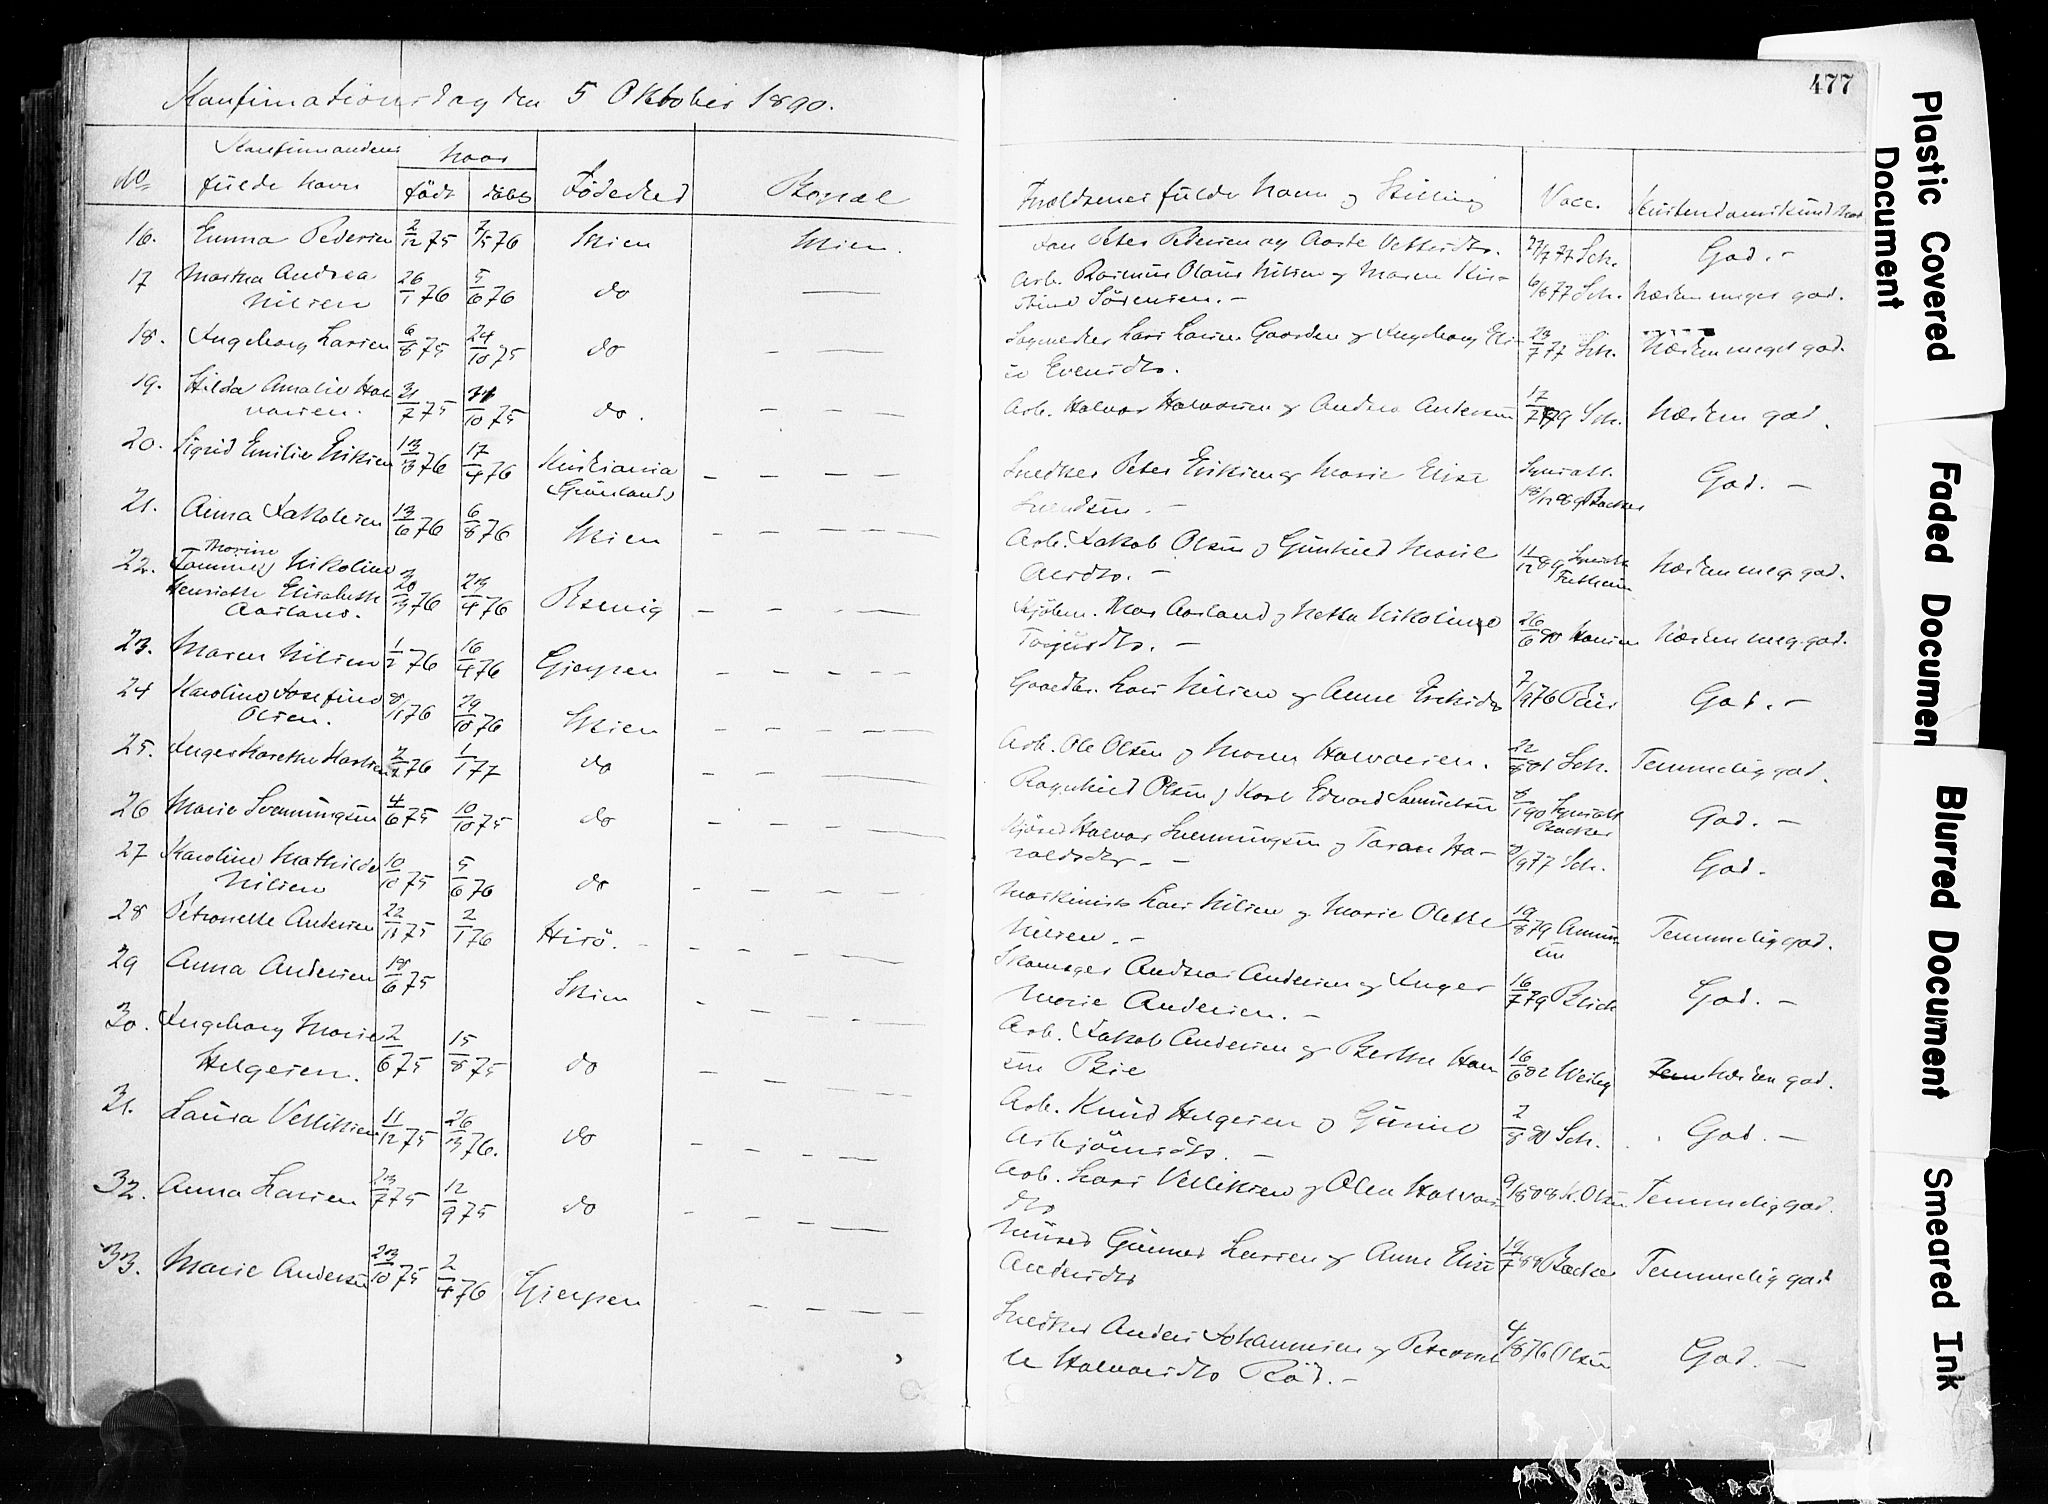 Konfirmationsdag den 5 Oktober 1890.
No
Konfirmandens fulde Navn
Naar
født
døbt
Fødested
Bopæl
16. Emma Pedersen 2/12 75 7/5 76 Skien Skien.
17 Martha Andrea 26/1 76 5/6 76 do
Nilsen
18. Ingeborg Larsen 6/8 75 24/10 75 do
19. Hilda Amalie Hal 31/7 75 10 75 do.
vorsen.
20. Sigrid Emilie Eriksen 13/3 76 17/4 76 Kristiania
Grønland
21. Anna Jakobsen 13/6 76 6/8 76 Skien
Thorine
22. Nikoline
Henriette Elisabeth 30/3 76 23/4 76 Brevig
Aarland.
23. Maren Nilsen 1/2 76 16/4 76 Gjerpen
24 Karoline Josefine 8/11 76 29/10 76 Skien
Olsen.
25. Inger Marethe Karlsen 76 1/1 77 do
26 Marie Svenningsen 4/6 75 10/10 75 do
27 Karoline Mathilde 10/10 75 5/6 76 do
Nilsen
28 Petronelle Andersen 22/11 75 2/1 76 Hisø.
29 Anna Andersen 18/6 75 Skien
30. Ingeborg Marie 2/6 75 15/8 75 do
Helgesen.
31. Laura Velliksen 11/12 75 26/3 76. do
32. Anna Larsen 23/7 75 12/9 75 do
33. Marie Andersen 23/10 75 2/4 76 Gjerpen
477
Forældrenes fulde Navn og Stilling
Vacc.
Kristendomskundskab
Jan Peter Pedersen og Aaste 27/7 77 Sch. God. -
Arb. Rasmus Olaus Nilsen og Maren Kir- 6/8 77 Sch. Næsten meget god.
stine Sørensen. -
Sagmester Lars Larsen Gaarden og Ingeborg Eli- 23/7 77 Sch. Næsten meget god.
se Evensdtr.
Arb. Halvor Halvorsen og Andrea Andersen 17/7 79 Sch. Næsten god.
Snedker Peter Eriksen og Marie Elise Synsatt. God. -
Svendsen. - Backer
Arb. Jakob Olsen og Gunhild Marie 89 Næsten meg. god.
-
Kjøbm. Aarland og Netta Nikoline 26/6 90 Hansen Næsten meg. god.
Torjusdtr. -
Gaardbr. Lars Nilsen og Anne 7/9 76 God. -
Arb. Ole Olsen og Maren Halvorsen. 22/8 81 Sch. Temmelig god.
Ragnhild Olsen og Karl Edvard Samuelsen 8/1 90 God. -
Backer
Halvor Svenningsen og Taran Ha- /9 77 Sch. God.
raldsdtr. -
Maskinist Lars Nilsen og Marie Olette 19/8 79 Temmelig god.
Nilsen. -
Skomager Andreas Andersen og Inger 16/7 79 Blich God. -
Marie Andersen. -
Arb. Jakob Andersen og Berthe Han 16/6 82 Næsten god.
sen Bie
Arb. Knud Helgesen og Gunild 2/8 80 Sch. God. -
Asbjørnsdtr. -
Arb. Lars Velliksen og Olea Halvors 9/8 K. Olsen Temmelig god.
dtr
Murer Gunner Larsen og Anne Elise 19/7 Backer Temmelig god
Andersdtr
Snedker Anders Johannesen og Peternel 4/8 76 Olsen God. -
le Halvorsdtr Rød. -
Plastic Covered
Document
Faded Documen
Blurred Document
Smeared Ink